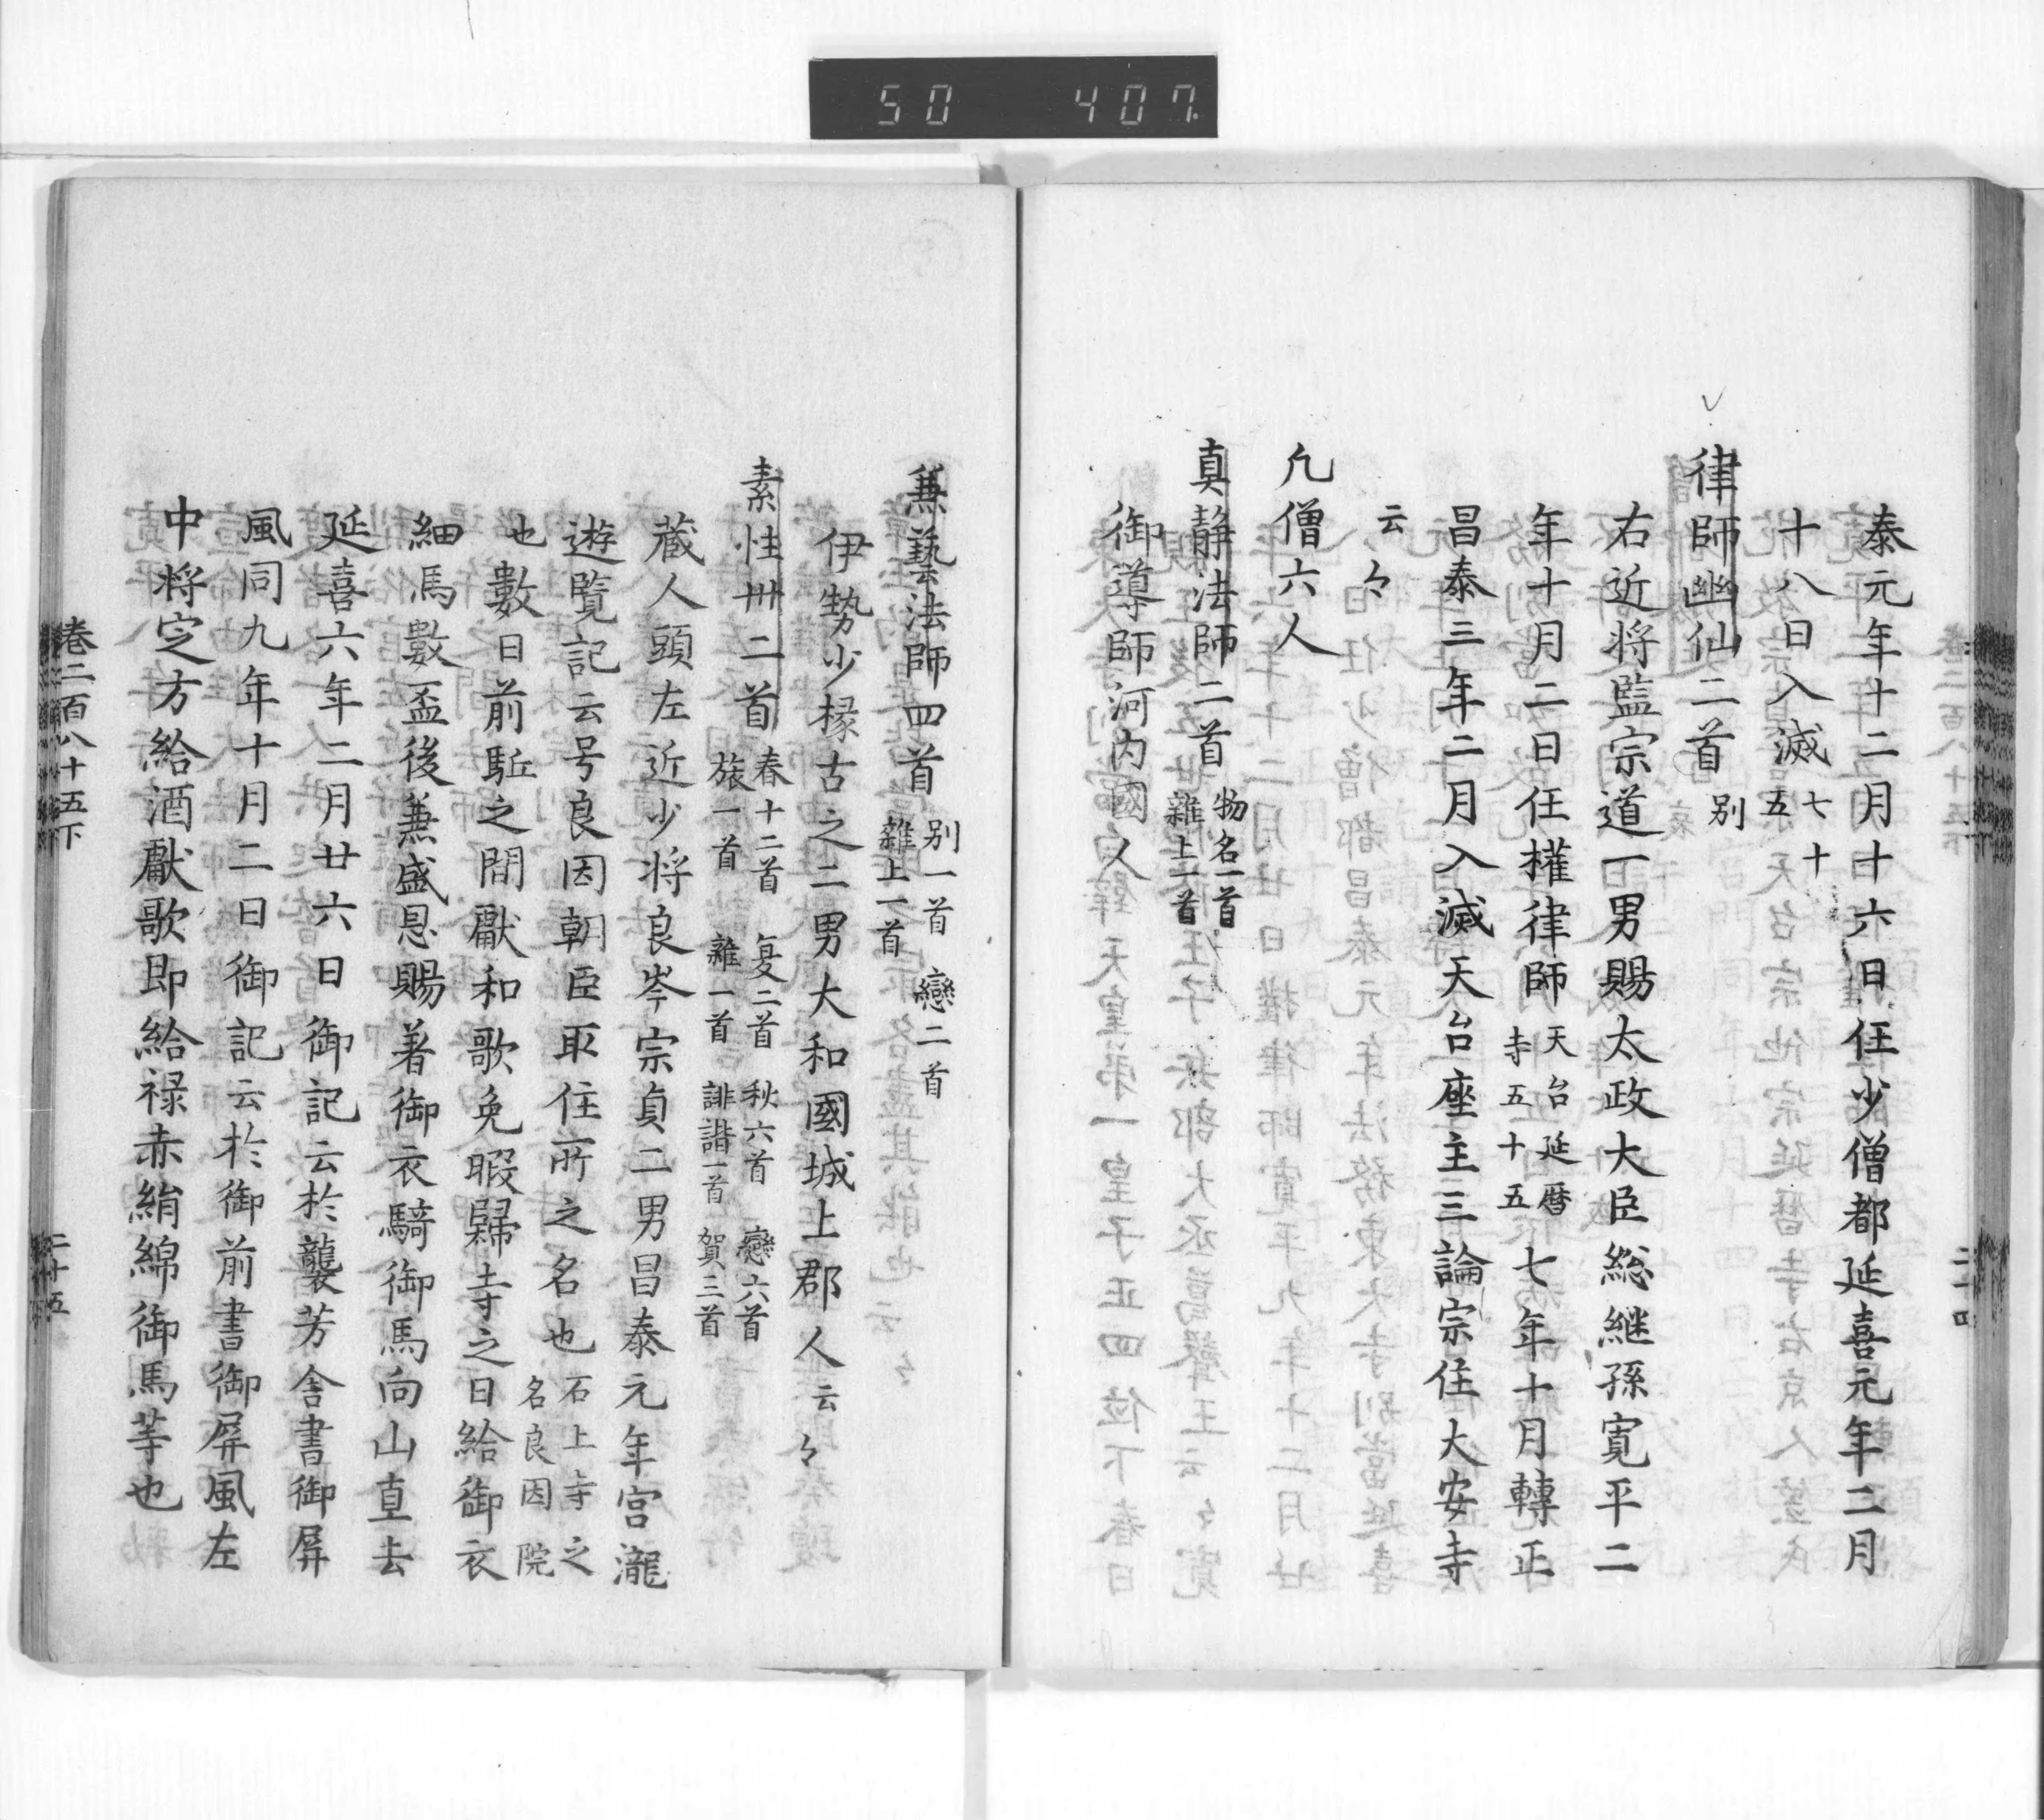 50 407
泰元年十二月十六日任少僧都延喜元年二月
十八日入滅七十五
律師幽仙二首別
右近将監宗道一男賜太政大臣総継孫寛平二
年十月二日任権律師天台延暦寺五十五七年十月轉正
昌泰三年二月入滅天台座主三論宗住大安寺
云々
凢僧六人
真静法師二首物名一首雜上一首
御導師河内國人
兼藝法師四首別一首戀二首雜上一首
伊勢少掾古之二男大和國城上郡人云々
素性卅二首春十二首夏二首秋六首戀六首旅一首雜一首誹諧一首賀三首
蔵人頭左近少将良岑宗貞二男昌泰元年宮瀧
遊覧記云号良因朝臣取住所之名也石上寺之名良因院
也數日前駈之間獻和歌免暇歸寺之日給御衣
細馬數盃後兼盛恩賜着御衣騎御馬向山直去
延喜六年二月廿六日御記云於襲芳舎書御屏
風同九年十月二日御記云於御前書御屏風左
中将定方給酒獻歌即給禄赤絹綿御馬等也
巻二百八十五下
二十五